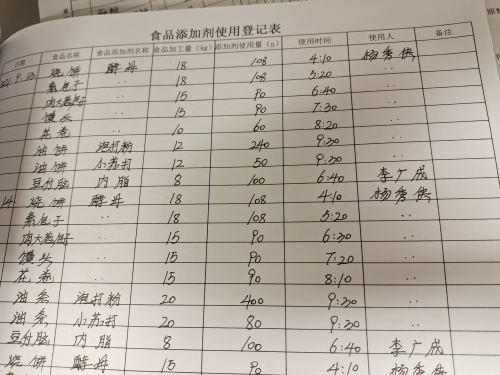 食品添加剂使用登记表
日期 食品名称 食品添加剂名称 食品加工量(kg) 添加剂使用量(g) 使用时间 使用人 备注
烧饼 酵母 18 108 4:10 杨秀侠
素包子 ‥ 18 108 5:20 ‥
肉大葱包子 ‥ 15 90 6:40 ‥
馒头 ‥ 15 90 7:30 ‥
花卷 ‥ 10 60 8:20 ‥
油饼 泡打粉 12 240 9:30 ‥
油饼 小苏打 12 50 9:30 ‥
豆付脑 内脂 8 100 6:40 李广成
14 烧饼 酵母 18 108 4:10 杨秀侠
素包子 ‥ 18 108 5:20 ‥
肉大葱包子 ‥ 15 90 6:30 ‥
馒头 ‥ 15 90 7:20 ‥
花卷 ‥ 15 90 8:10 ‥
油条 泡打粉 20 400 9:30 ‥
油条 小苏打 20 80 9:30 ‥
豆付脑 内脂 8 100 6:40 李广成
烧饼 酵母 15 90 4:10 杨秀侠